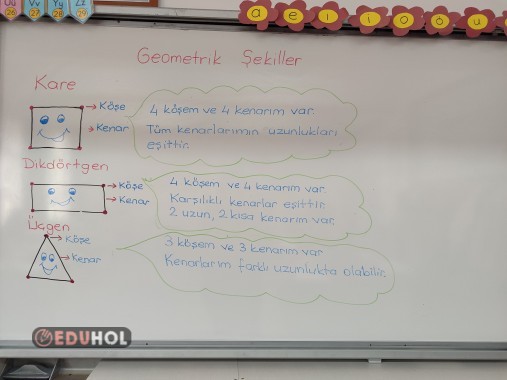 Üü Vv Yy Zz
26 27 28 29
a e ı i o ö u
Geometrik Şekiller
Kare
Köşe
Kenar
4 köşem ve 4 kenarım var.
Tüm kenarlarımın uzunlukları
eşittir.
Dikdörtgen
Köşe
Kenar
4 köşem ve 4 kenarım var.
Karşılıklı kenarlar eşittir.
2 uzun, 2 kısa kenarım var.
Üçgen
Köşe
Kenar
3 köşem ve 3 kenarım var
Kenarlarım farklı uzunlukta olabilir.
EDUHOL